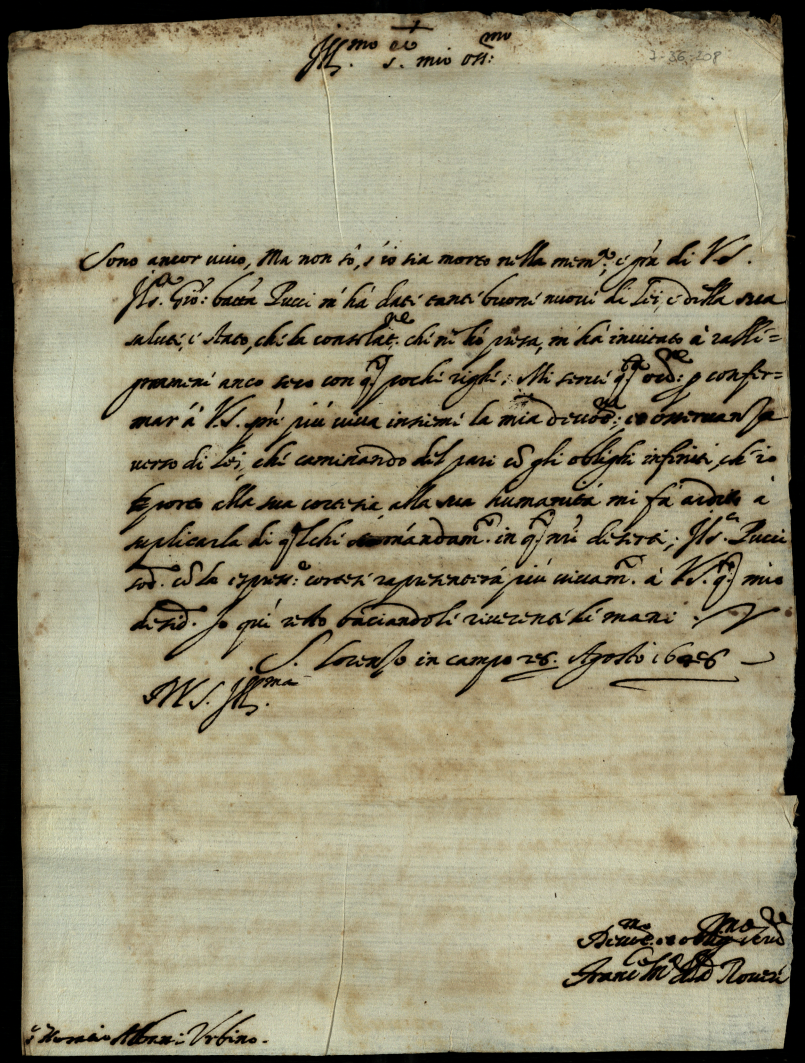 Ill.mo et
s. mio oss:mo
7-36-208
Sono ancor vivo, Ma non sò, s'io sia morto nella mem.a, e gr̃a di V.S.
Il s.r Gio: batta Pucci m'hà dati tanti buoni nuovi di Lei, e della sua
salute, e stato, che la consolat.ne che ne hò presa, m'hà invitato à ralle=
grarmene anco seco con q.te poche righe; Mi serve q.ta occ.ne p confer=
mar à V.S. più viva insieme la mia devot.ne, et osservanza
verso di Lei, che caminando del pari cõ gli oblighi infiniti, ch'io
porto alla sua cortesia alla sua humanità mi fà ardito à
suplicarla di q̃lche comandam.to in q.ti nri deserti; Il s.r Pucci
sod. cõ la cortese rapresenterà più vivam.te à V.S. q.to mio
desid.o Io qui resto baciandole riverente le mani
S. Lorenzo in campo 28. Agosto
Di V.S. Ill.ma
Devot.mo et oblig.mo ser.re
Franc.o M.a della Rovere
s.r Horatio Albani Urbino.